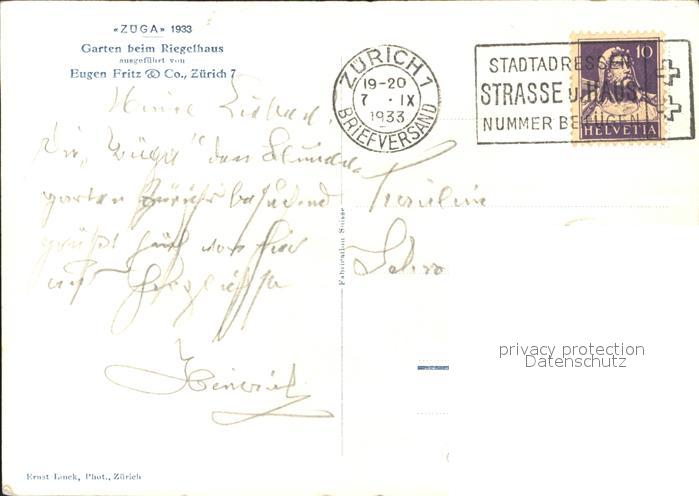 «ZÜGA» 1933
Garten beim Riegelhaus
ausgeführt von
Eugen Fritz & Co., Zürich 7
ZÜRICH 1
19-20
7. IX
1933
BRIEFVERSAND
STADTADRESSEN
STRASSE u. HAUS-
NUMMER BEIFÜGEN
10
HELVETIA
Meine Liebe
die „Züga" den
garten Zürichs besuchend
grüßt von hier
Heinrich
Fräulein
Fabrication Suisse
privacy protection
Datenschutz
Ernst Linck, Phot., Zürich